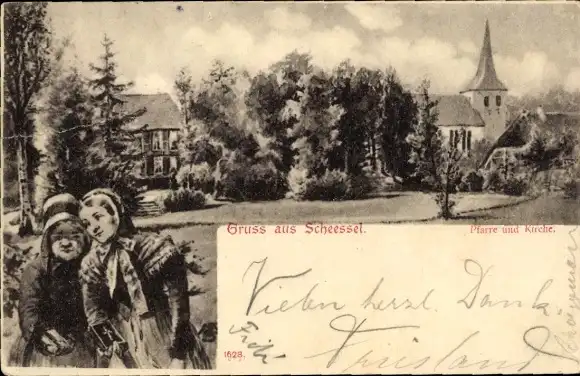 Gruss aus Scheessel.
Pfarre und Kirche.
Vielen herzl. Dank.
Friesland
1628.